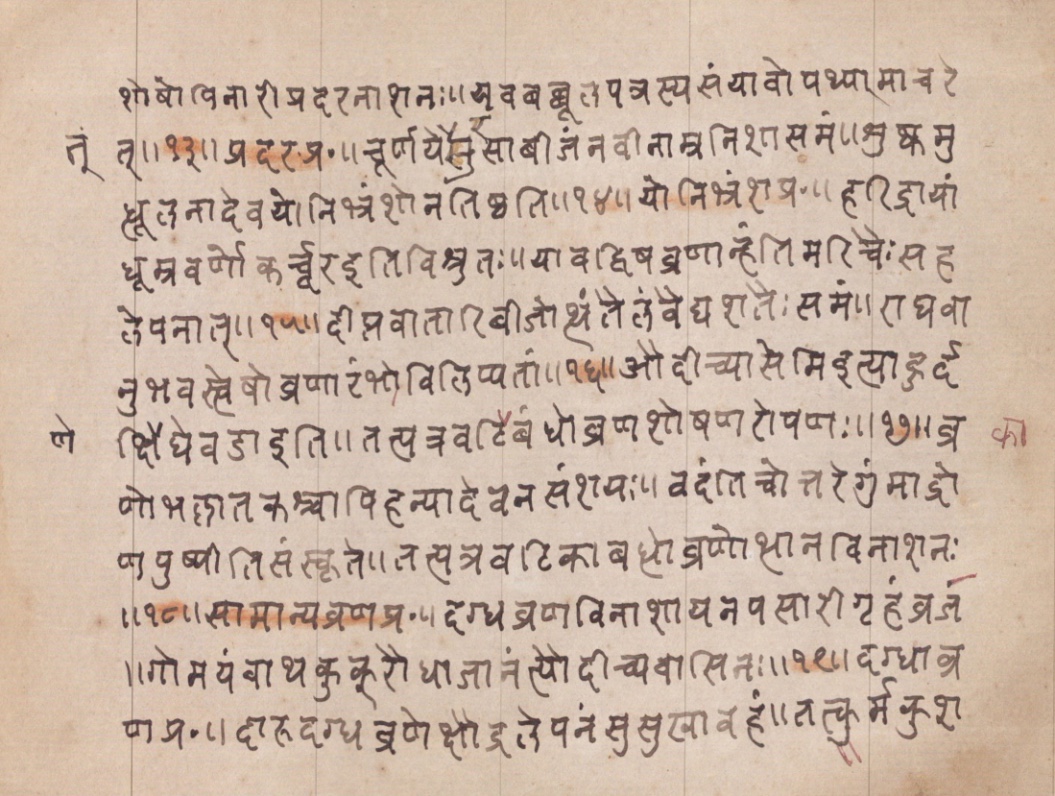 शोषो विनारी प्रदरनाशनः॥ यवबब्बूलपत्रस्य संयावो पथ्यमाचरे
त्॥१३॥ प्रदरप्र॰॥ चूर्णये सा बीजं नवीनाम्रनिशासमं॥ शुष्कमु
द्धूलनादेव योनिभ्रंशो न तिष्ठति॥१४॥ योनिभ्रंशप्र॰॥ हरिद्रायां
धूम्रवर्णो कर्चूर इति विश्रुतः॥ यावद्विषव्रणान्हंति मरिचैः सह
लेपनात्॥१५॥ दीप्रवातारिबीजोत्थं तैलं वैद्यशतैः समं॥ राघवा
नुभवस्त्वेषो व्रणारंभो विलिप्यतां॥१६॥ औदीच्या सेमि इत्याहुर्द
क्षिणे घेवडा इति॥ तत्पत्रवटिबंधो व्रणशोषणरोपणः॥१७॥ व्र
णो भल्लातकश्चापि हन्यादेव न संशयः॥ वदंति चोत्तरे गुंमा द्रो
णपुष्पीति संस्कृते॥ तत्पत्रवटिकाबंधो व्रणोत्थानविनाशनः
॥१८॥ सामान्यव्रणप्र॰॥ दग्धव्रणविनाशाय नपसारीगृहं व्रजं
॥ गोमयं वाथ कुकूरौधाजानंत्यौदीच्यवासिनः॥१९॥ दग्धाव्र
णप्र॰॥ दारुदग्धव्रणे क्षौद्रलेपनं सुसुखावहं॥ तत्कुर्मकुश
का